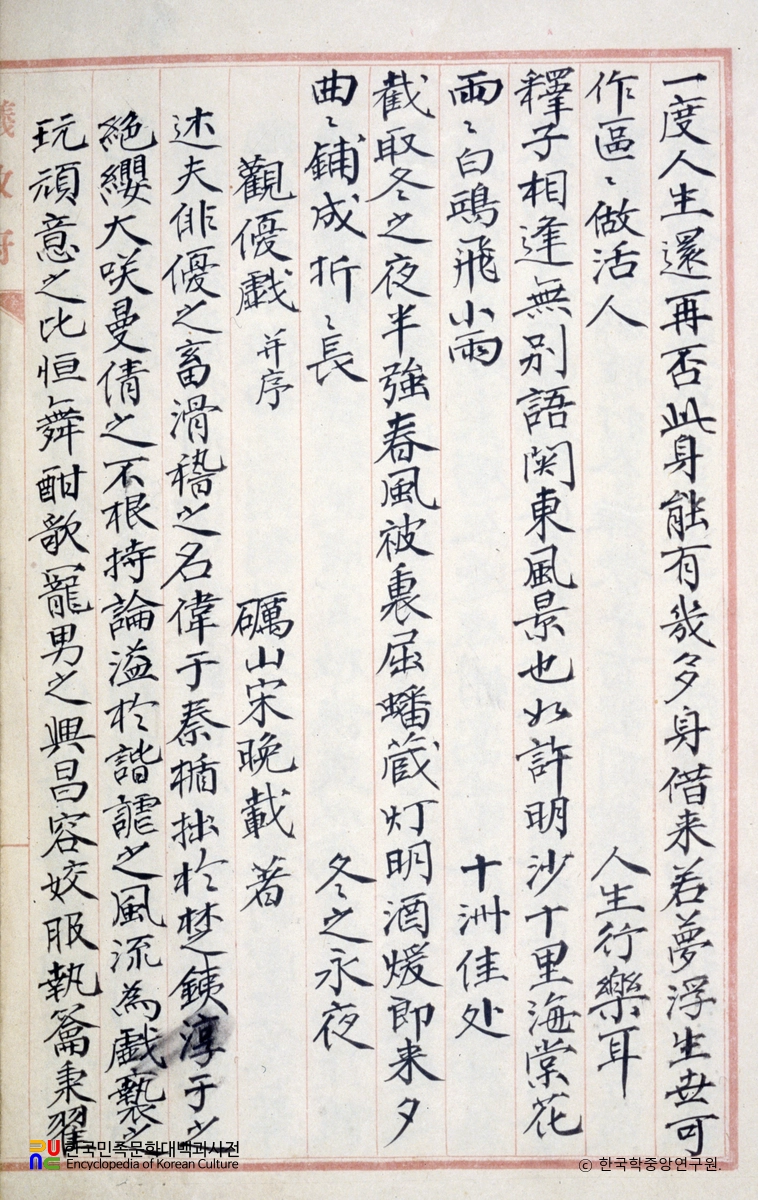 一度人生還再否此身能有幾多身借来若夢浮生世可
作區〻做活人 人生行樂耳
釋子相逢無別語関東風景也如許明沙十里海棠花
兩〻白鴎飛小雨 十洲佳处
截取冬之夜半強春風被裏屈蟠蔵灯明酒煖即来夕
曲〻鋪成折〻長 冬之永夜
觀優戲 并序 礪山宋晚載著
述夫俳優之畜滑稽之名偉于秦楯拙於楚鐵淳于之
絕纓大咲曼倩之不根持論溢於諧謔之風流為戲褻之
玩頑意之比恒〻舞酣歌寵男之興昌容姣服執籥秉翟
한국민족문화대백과사전
Encyclopedia of Korean Culture
© 한국학중앙연구원.